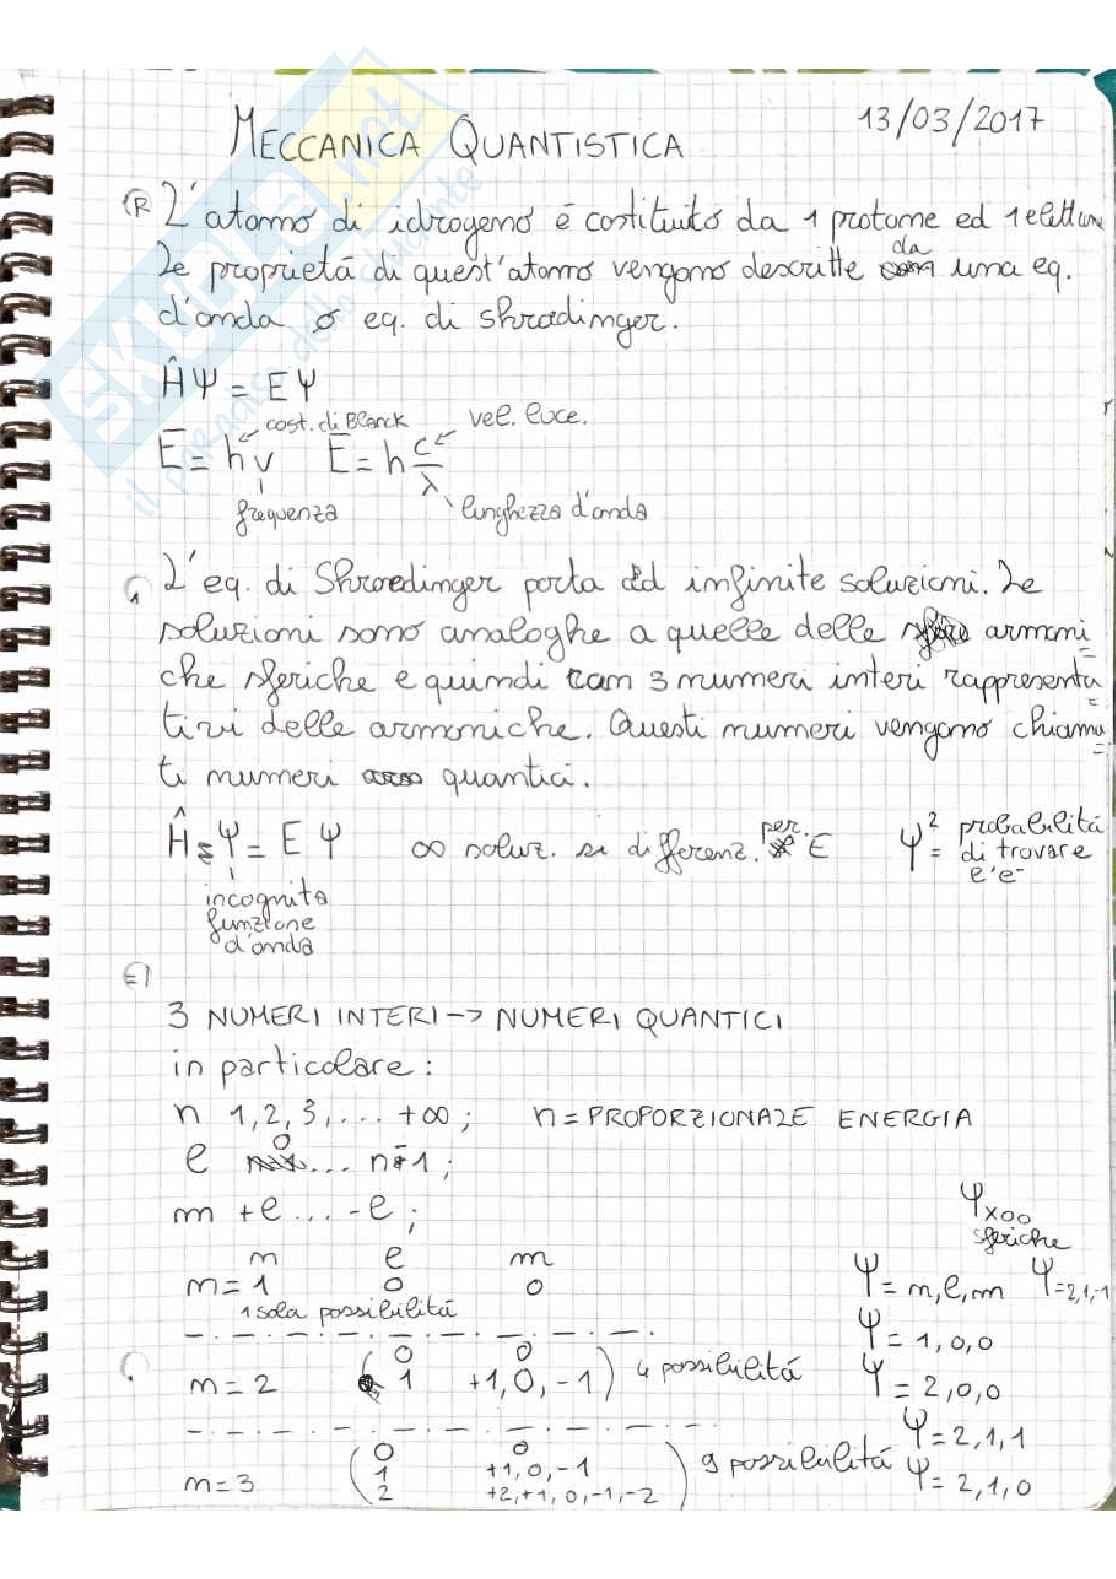 MECCANICA QUANTISTICA
13/03/2017
L'atomo di idrogeno é costituito da 1 protone ed 1 elettrone
Le proprietá di quest'atomo vengono descritte da una eq.
d'onda o eq. di shrodinger.
ĤΨ = EΨ
cost. di Blanck
vel. luce.
E = hν E = h c/λ
frequenza
lunghezza d'onda
L'eq. di Shroedinger porta ad infinite soluzioni. Le
soluzioni sono analoghe a quelle delle armoni
che sferiche e quindi con 3 numeri interi rappresenta
tivi delle armoniche. Questi numeri vengono chiama
ti numeri quantici.
ĤΨ = EΨ ∞ soluz. si differenz. per. E
Ψ² = probabilitá di trovare l'e⁻
incognita
funzione
d'onda
3 NUMERI INTERI -> NUMERI QUANTICI
in particolare:
n 1, 2, 3, ... +∞; n = PROPORZIONALE ENERGIA
l 0 ... n-1;
m +l ... -l;
Ψx00
sferiche
n l m
n = 1 0 0
Ψ = n, l, m Ψ = 2,1,-1
1 sola possibilitá
Ψ = 1, 0, 0
0 0
n = 2 1 +1, 0, -1) 4 possibilitá
Ψ = 2, 0, 0
Ψ = 2, 1, 1
0 0
n = 3 1 +1, 0, -1 9 possibilitá
2 +2, +1, 0, -1, -2
Ψ = 2, 1, 0
SKUOLA.net
il paradiso dello studente